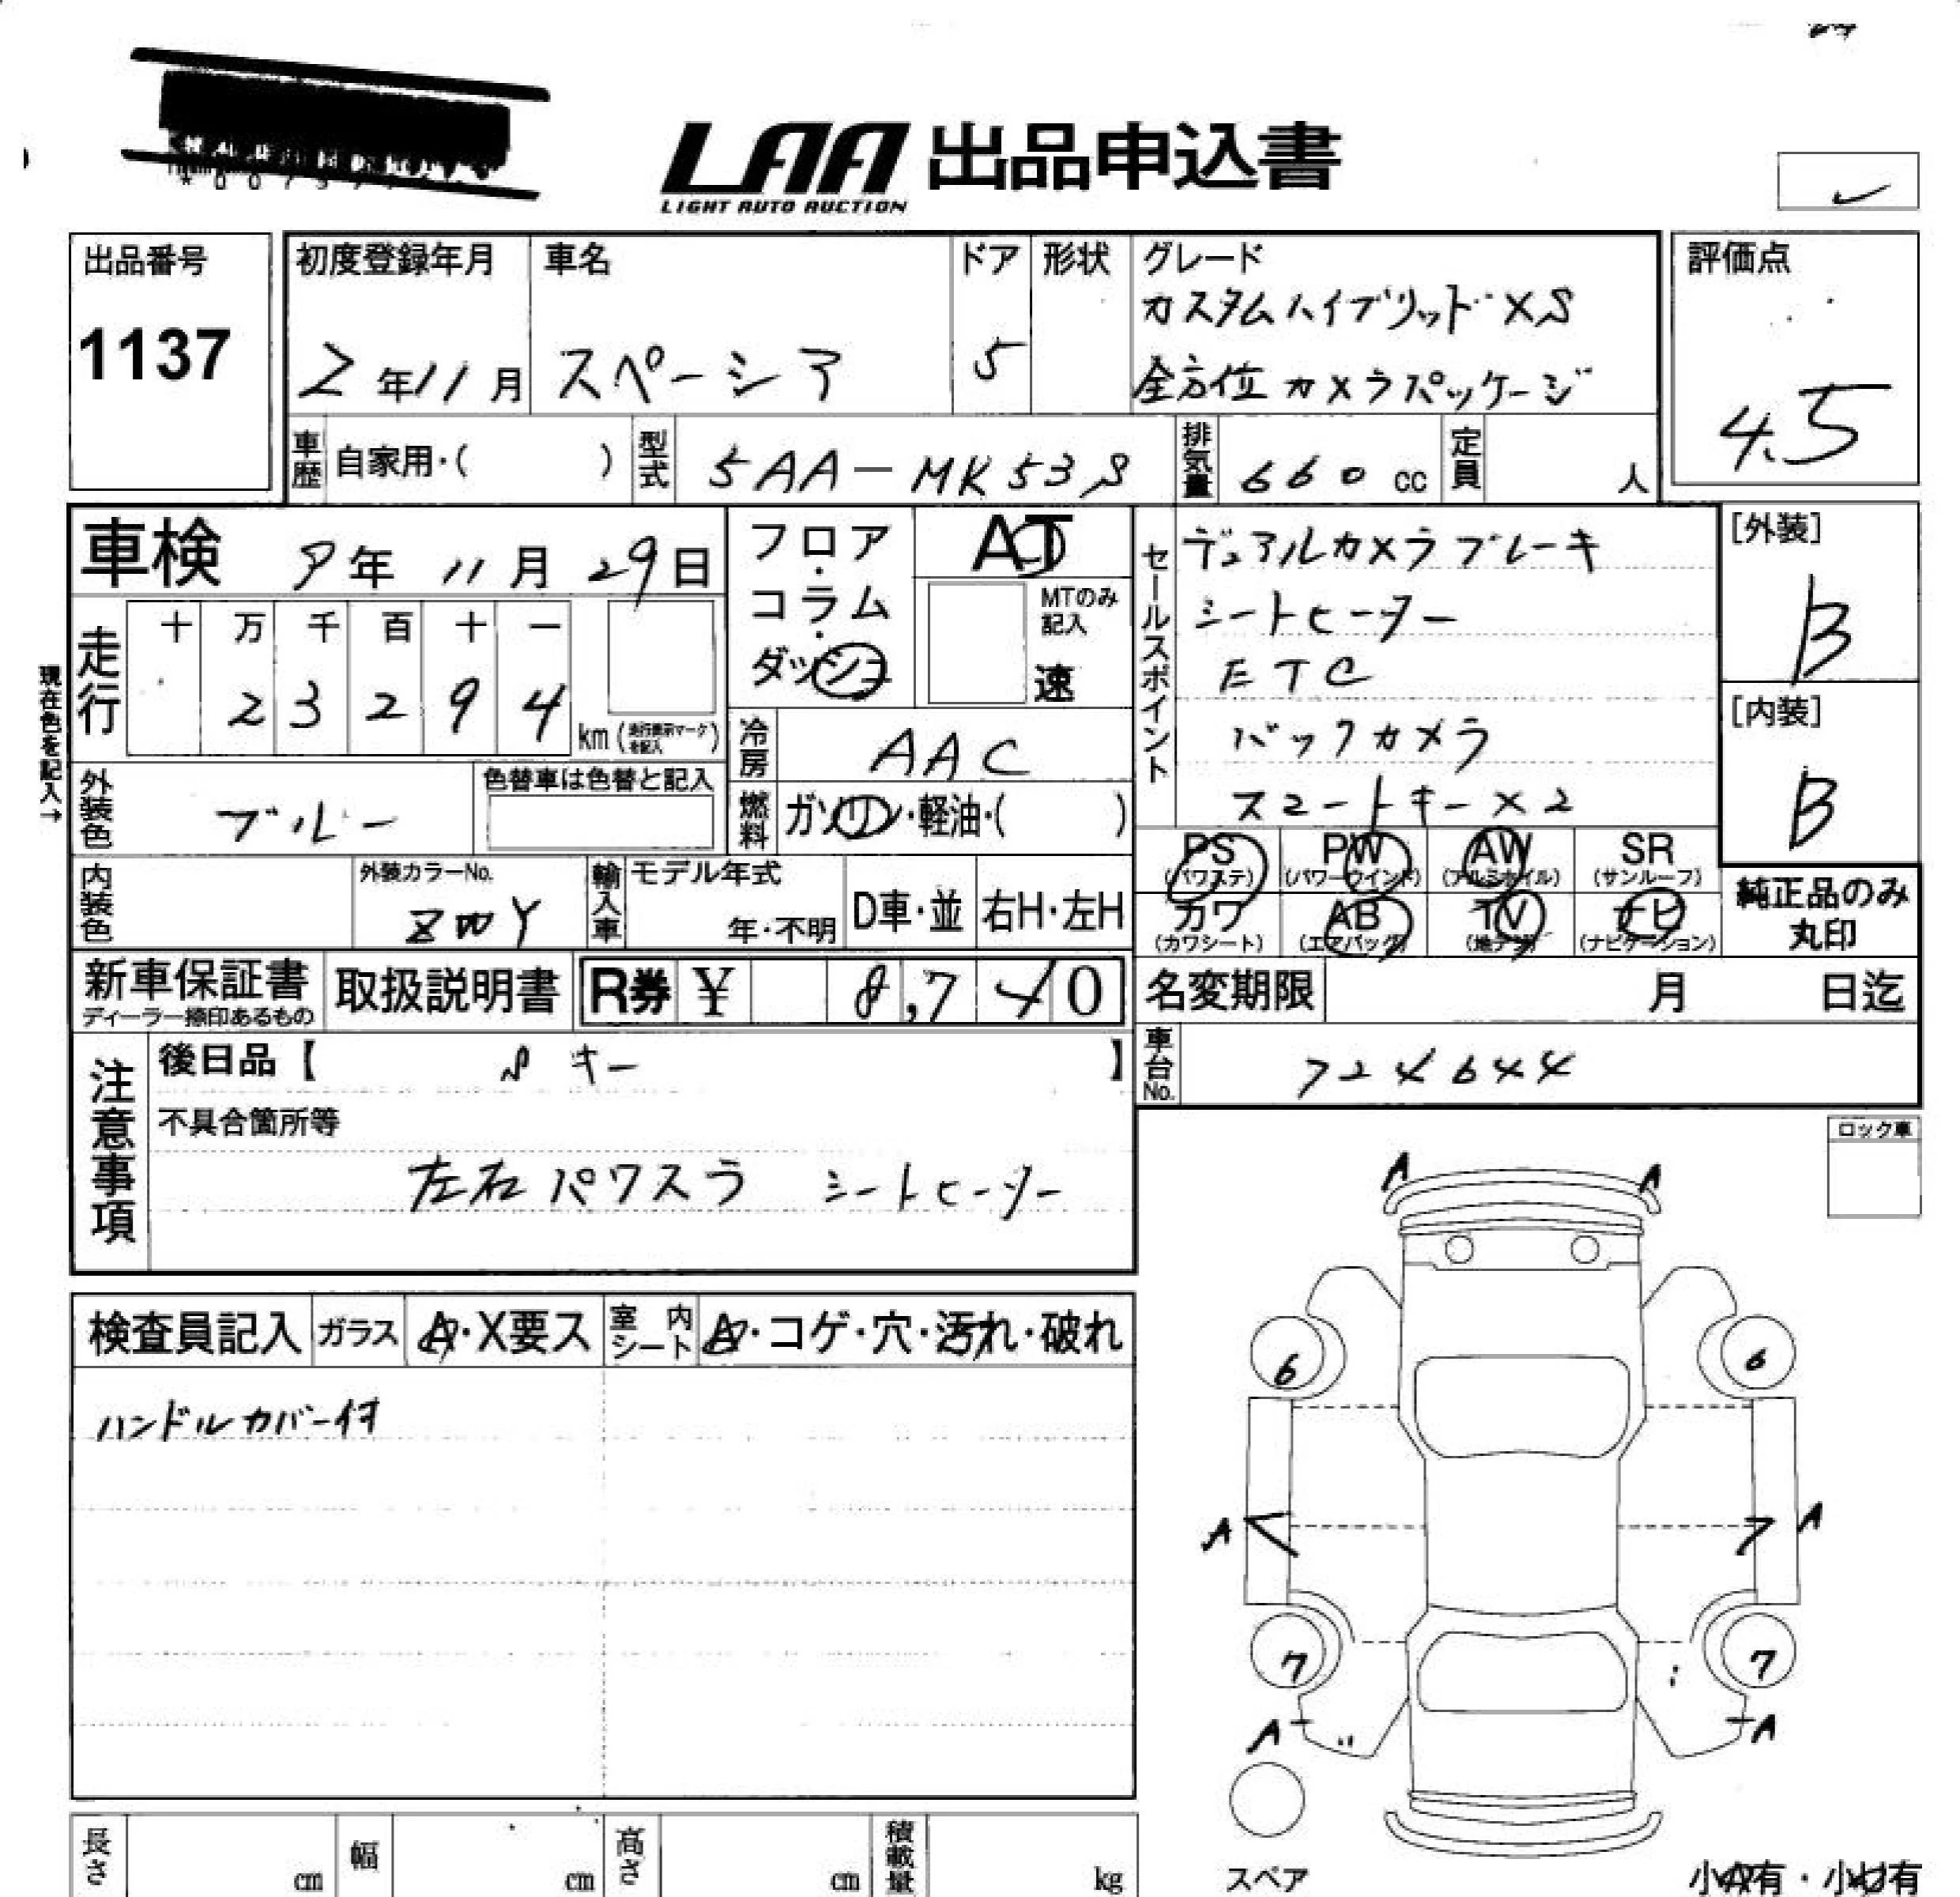 LAA 出品申込書
LIGHT AUTO AUCTION
出品番号
1137
初度登録年月
2年11月
車名
スペーシア
ドア
5
形状
グレード
カスタムハイブリッドXS
全方位カメラパッケージ
評価点
4.5
車歴 自家用・( )
型式 5AA-MK53S
排気量 660 cc
定員 人
車検 9年 11月 29日
フロア・コラム・ダッシュ
AT
MTのみ記入
速
走行 十 万 千 百 十 一
2 3 2 9 4 km
現在色を記入→
外装色 ブルー
色替車は色替と記入
冷房 AAC
燃料 ガソリン・軽油・( )
セールスポイント
デュアルカメラブレーキ
シートヒーター
ETC
バックカメラ
スマートキー×2
[外装]
B
[内装]
B
内装色
外装カラーNo.
ZWY
輸入車
モデル年式
年・不明
D車・並
右H・左H
PS (パワステ)
PW (パワーウインド)
AW (アルミホイル)
SR (サンルーフ)
カワ (カワシート)
AB (エアバッグ)
TV (地デジ)
ナビ (ナビゲーション)
純正品のみ
丸印
新車保証書
ディーラー捺印あるもの
取扱説明書
R券 ¥ 8,740
名変期限 月 日迄
車台No. 724644
注意事項
後日品【 Sキー 】
不具合箇所等
左右パワスラ シートヒーター
ロック車
検査員記入
ガラス A・X要ス
室内シート A・コゲ・穴・汚れ・破れ
ハンドルカバー付
A A
6 6
A A
7 7
A A
スペア
長さ cm
幅 cm
高さ cm
積載量 kg
小A有・小U有